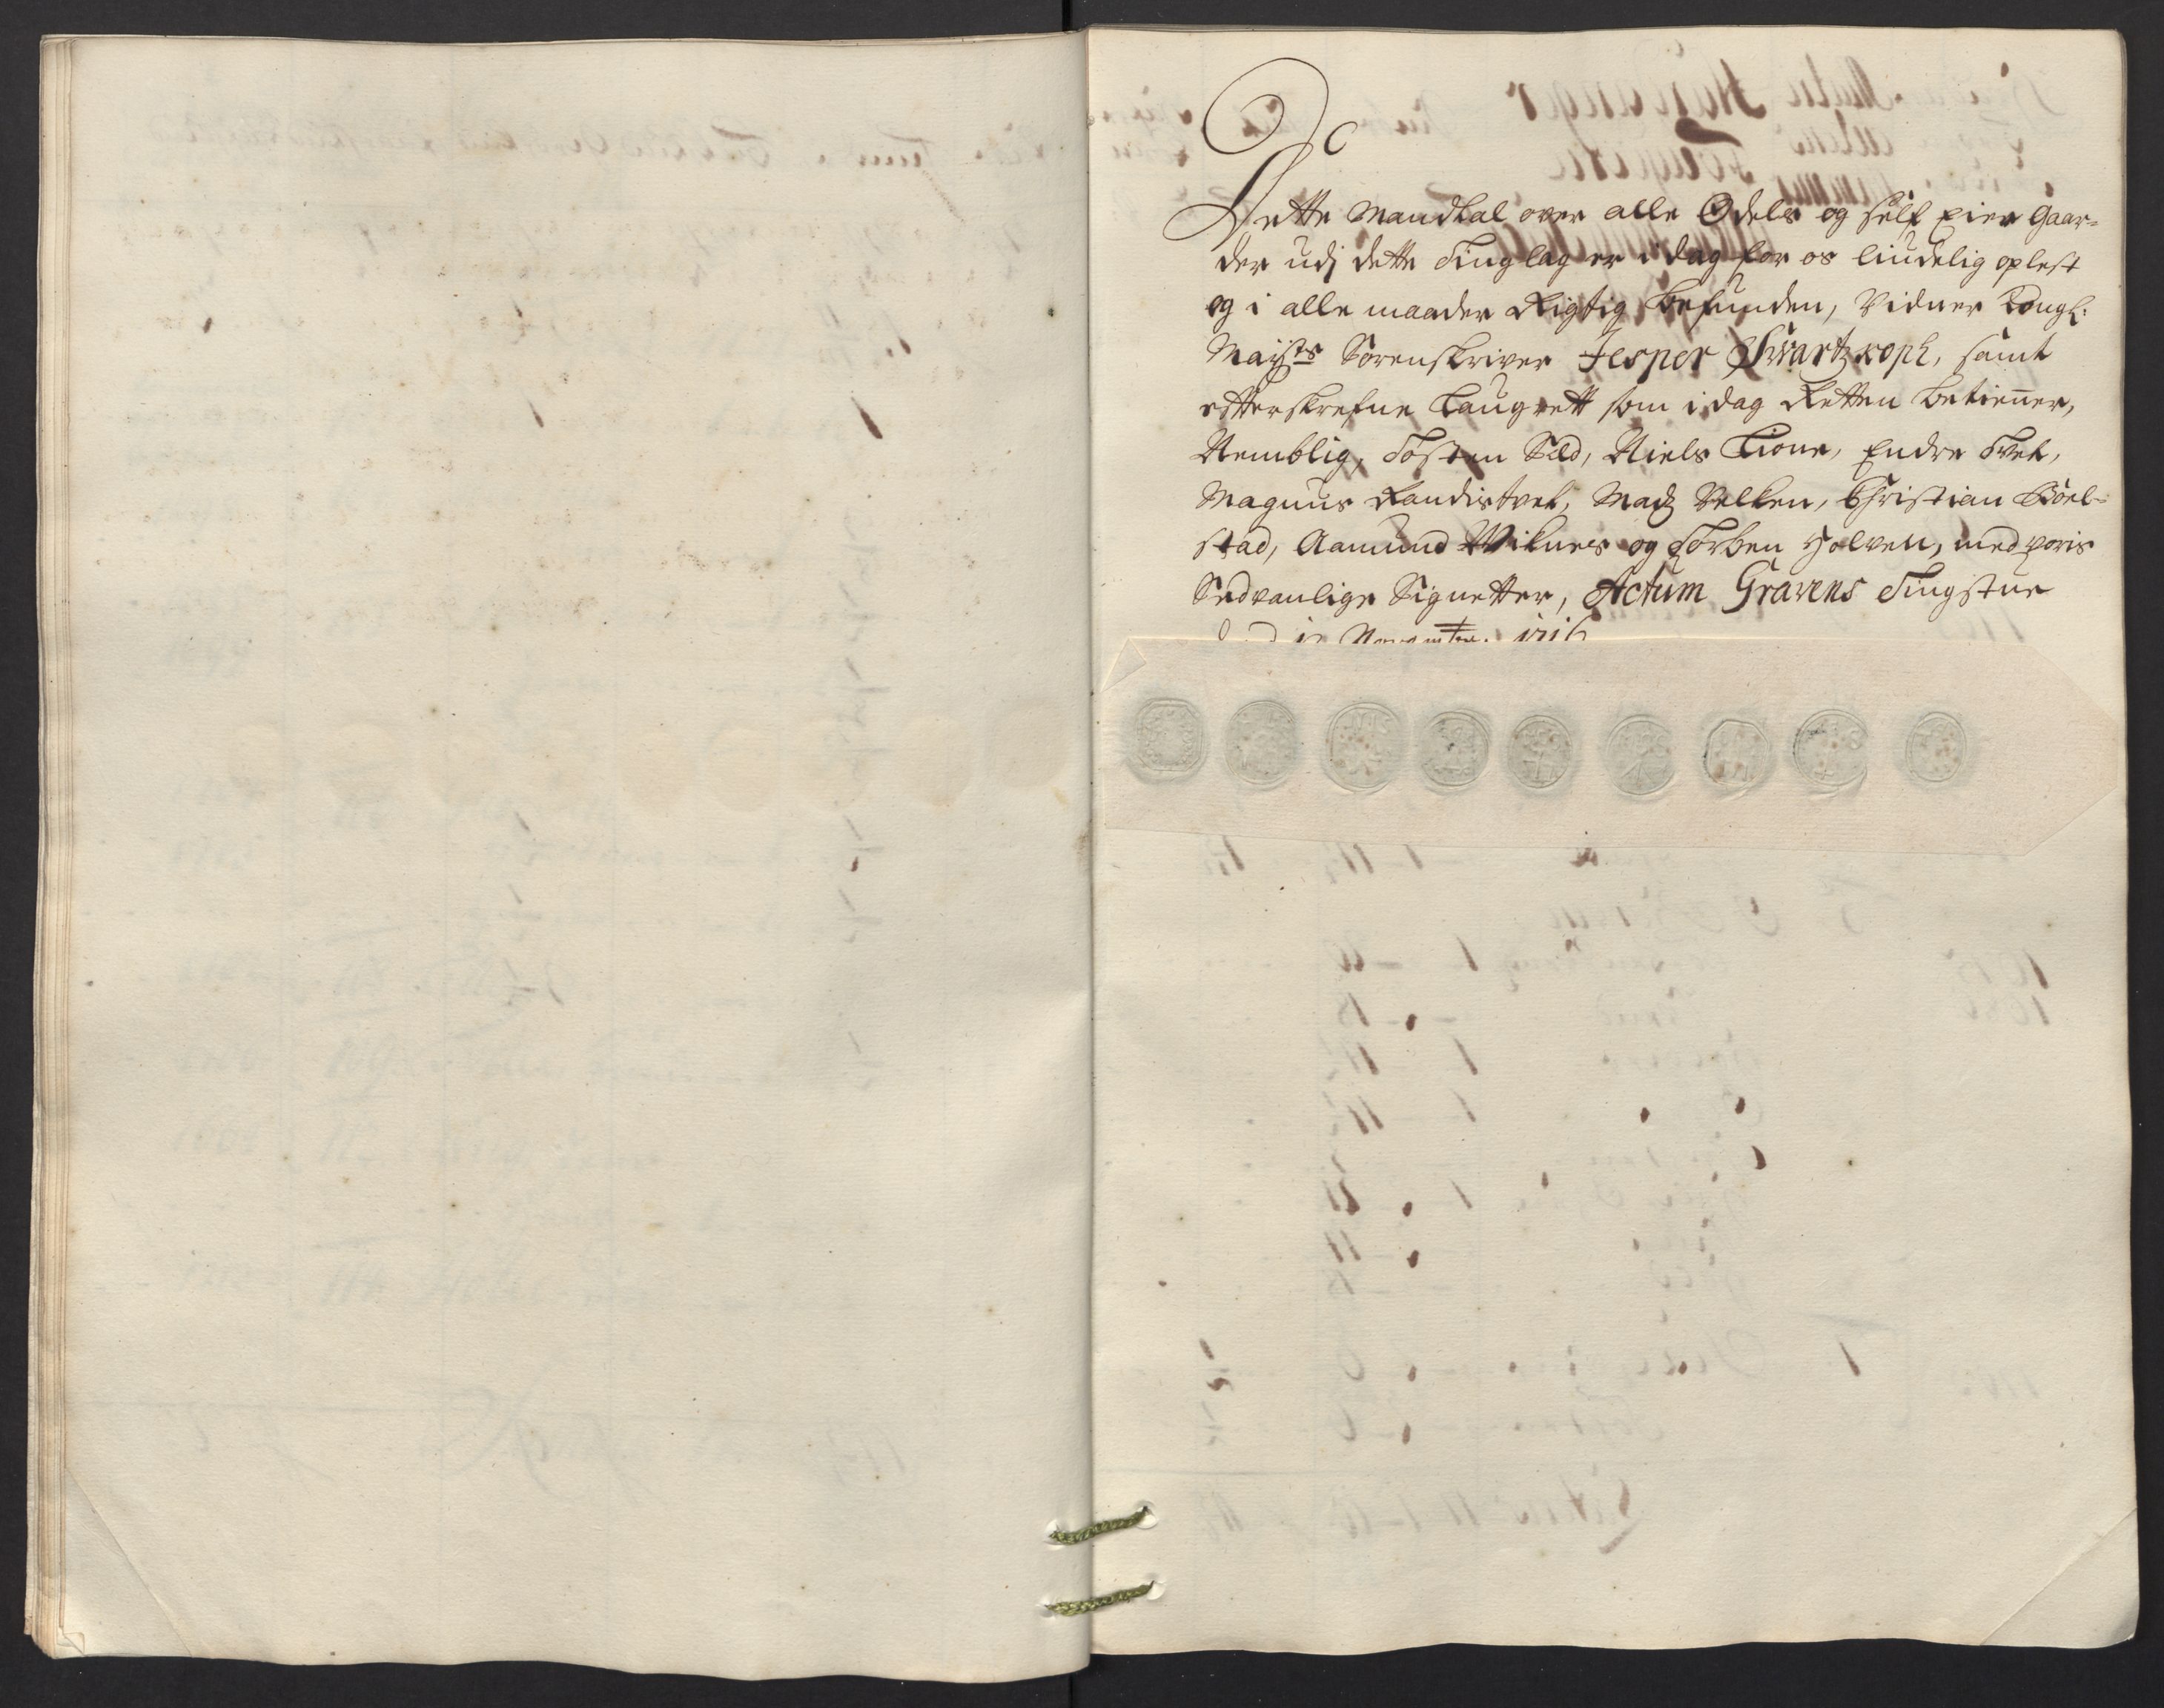 Dette Mandtal over alle Odels og self Eier Gaar=
der udj dette Tinglag er i dag for os liudelig oplest
og i alle maader Rigtig befunden, Vidner Kongl:
Mayts Sorenskriver Jesper Swartzkoph, samt
efterskrefne Laugrett som i dag Retten betienner,
Nemblig, Tosten Sæd, Niels Lione, Endre Tvet,
Magnus Randistvet, Madz Velken, Christian Kóel=
stad, Aamund Wiknes og Torben Holven, med voris
Sedvanlige Signetter, Actum Gravens Tingstue
November. 1716